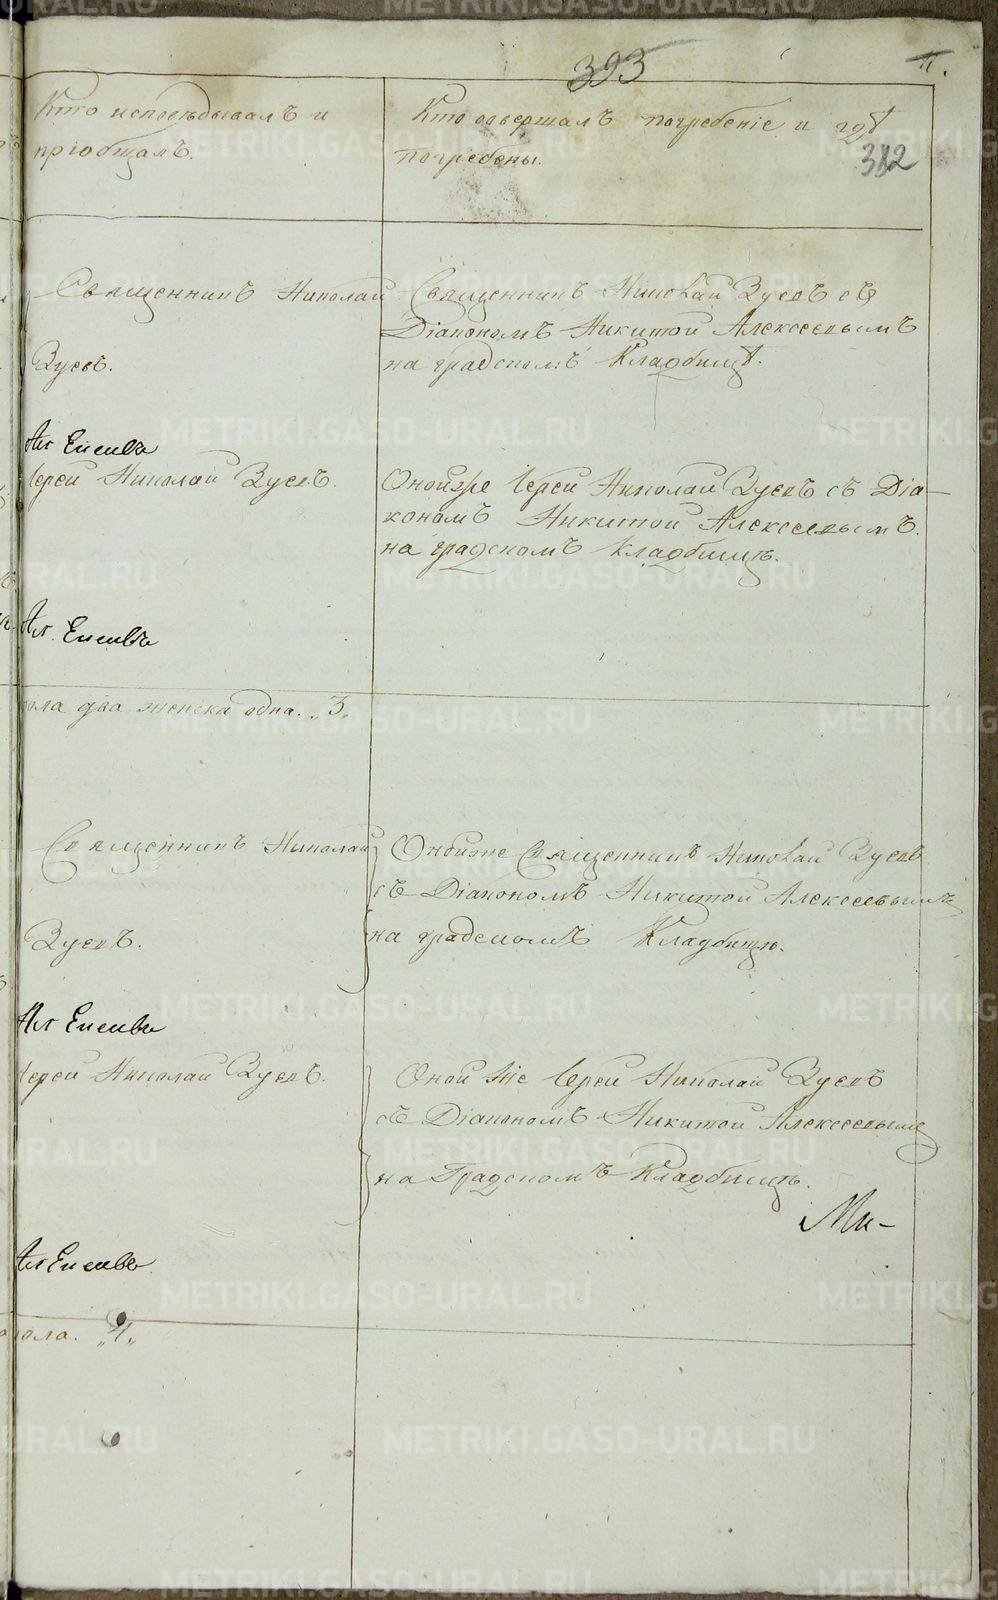 393
11.
Кто исповѣдывалъ и
пріобщалъ.
Кто совершалъ погребеніе и гдѣ
погребены.
382
Священникъ Николай
Зуевъ.
Священникъ Николай Зуевъ съ
Діакономъ Никитой Алексеевымъ
на градскомъ Кладбищѣ.
Іерей Николай Зуевъ.
Онойже Іерей Николай Зуевъ съ Діа-
кономъ Никитой Алексеевымъ.
на градскомъ кладбищѣ.
пола два женска одна. „3„
Священникъ Николай
Зуевъ.
Онойже Священникъ Николай Зуевъ
съ Діакономъ Никитой Алексеевымъ
на градскомъ Кладбищѣ.
Іерей Николай Зуевъ.
Оной же Іерей Николай Зуевъ
съ Діакономъ Никитой Алексеевымъ
на Градскомъ Кладбищѣ.
Ми-
пола.
METRIKI.GASO-URAL.RU